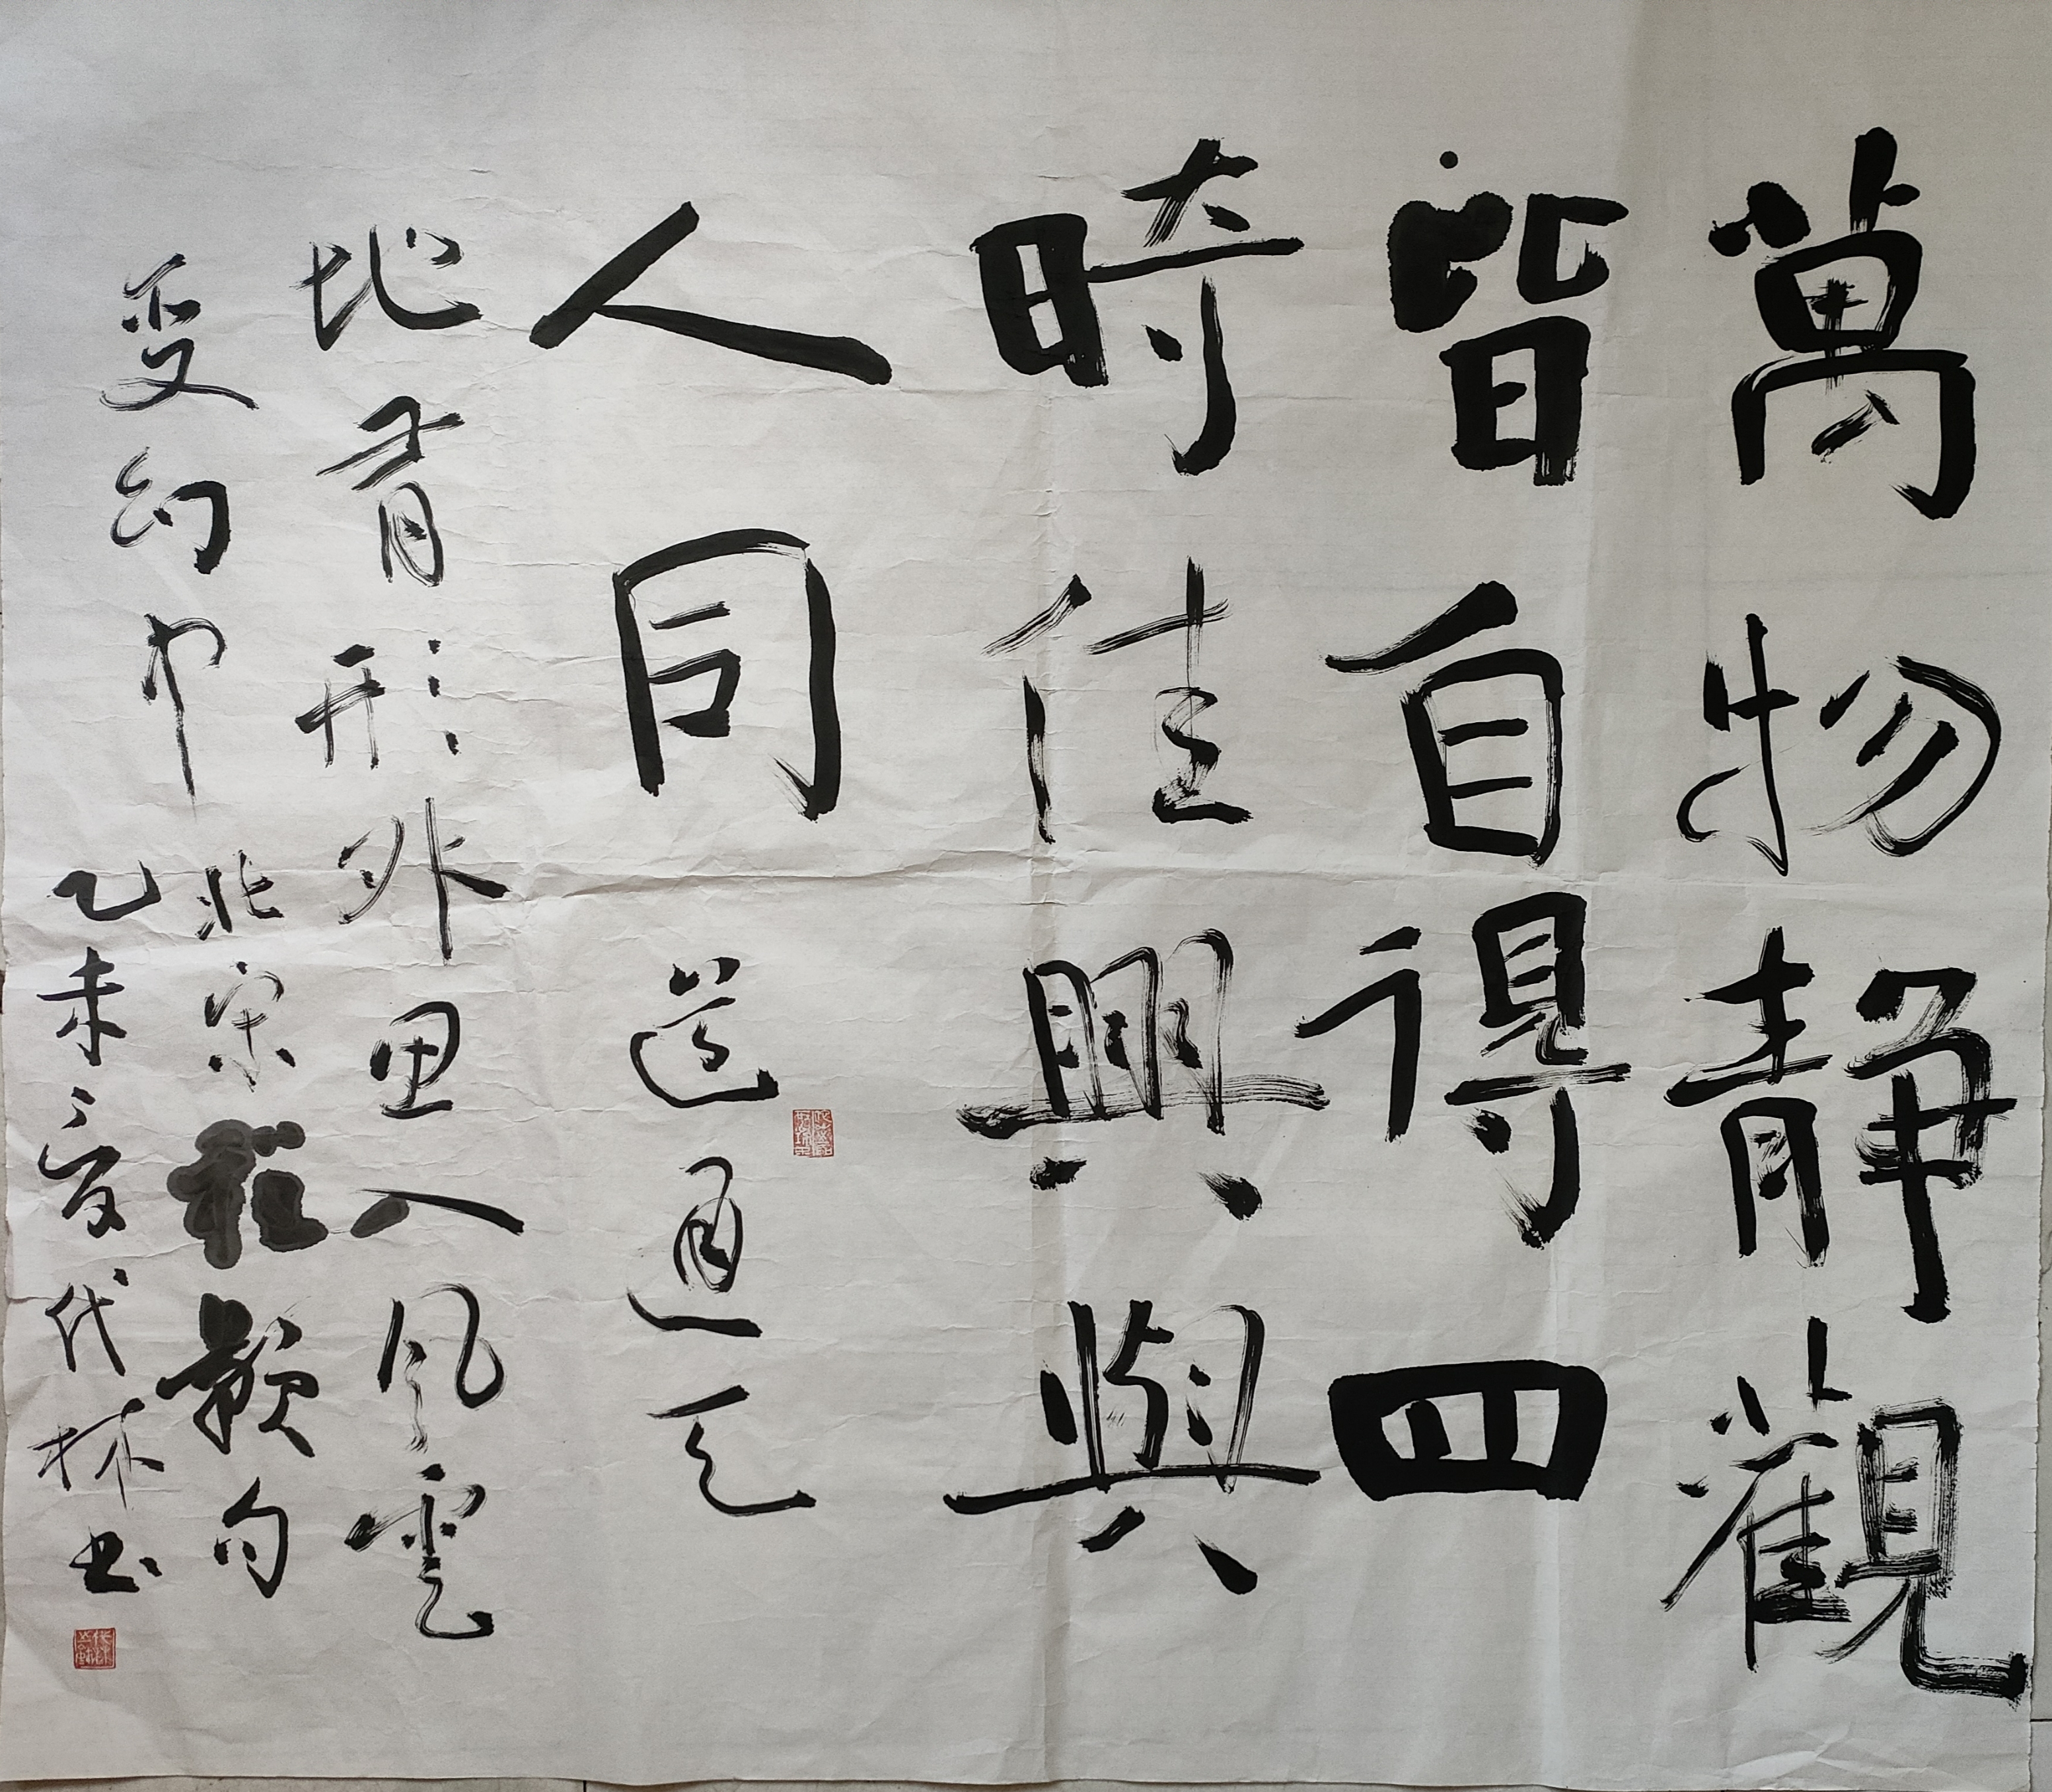 萬物靜觀
皆自得四
時佳興與
人同
道通天
地有形外思入風雲
变幻中
北宋程颢句
乙未夏代林书